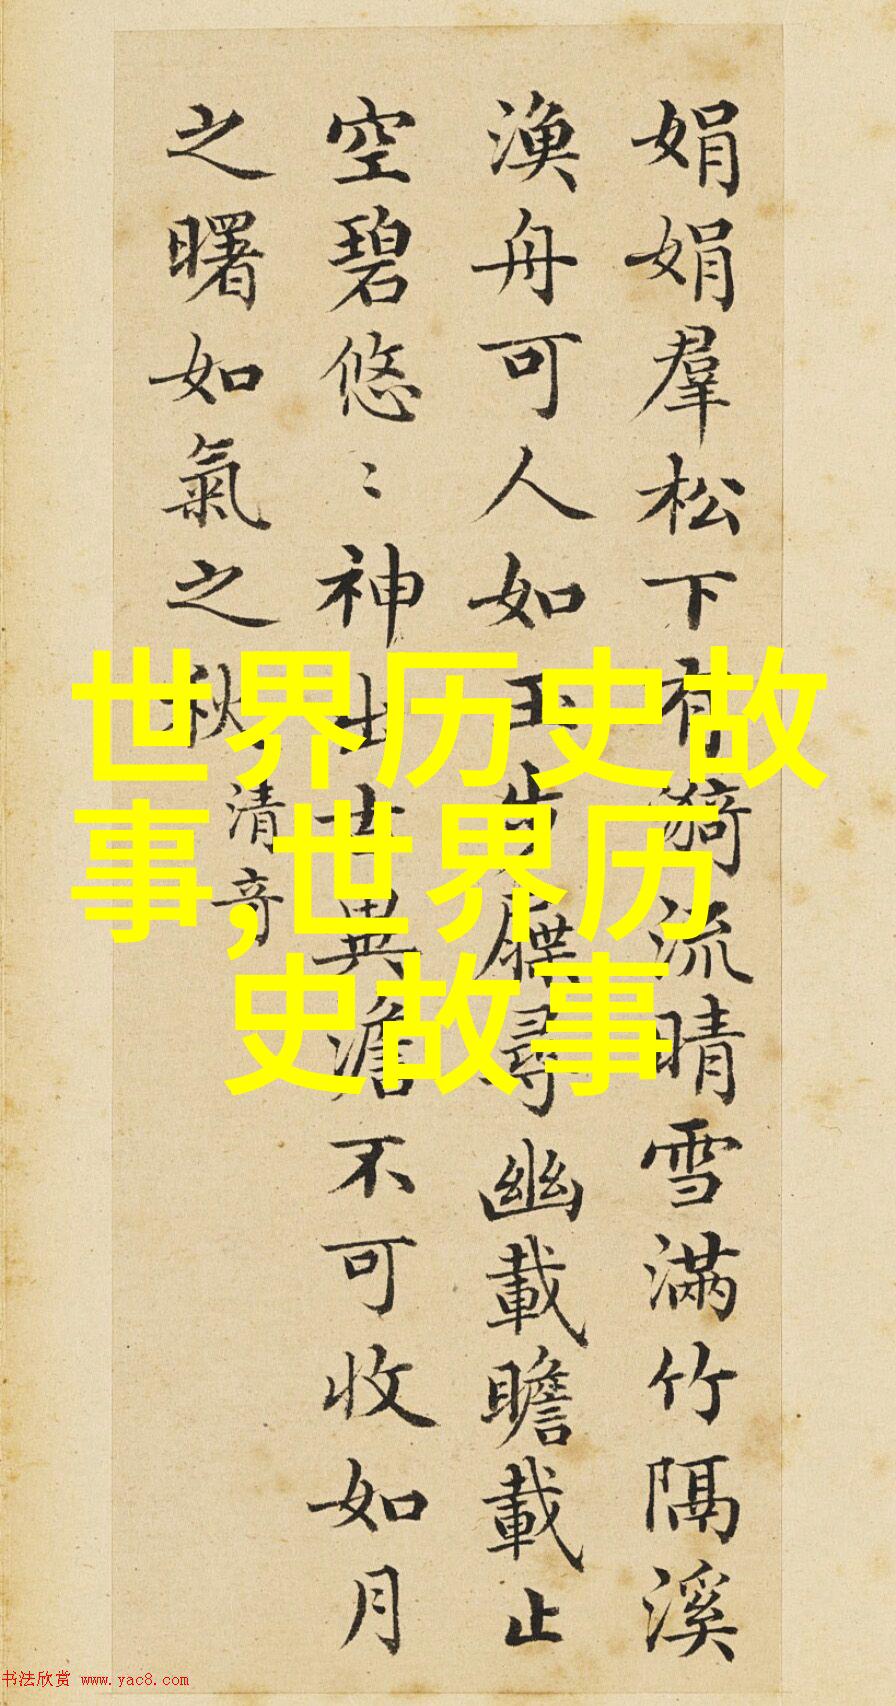 娟娟羣松下有漪流晴雪滿竹隔溪
漁舟可人如玉步屧尋幽載瞻載止
空碧悠〻神出古異澹不可收如月
之曙如氣之秋
清奇
世界历史故
事,世界历
史故事
书法欣赏 www.yac8.com